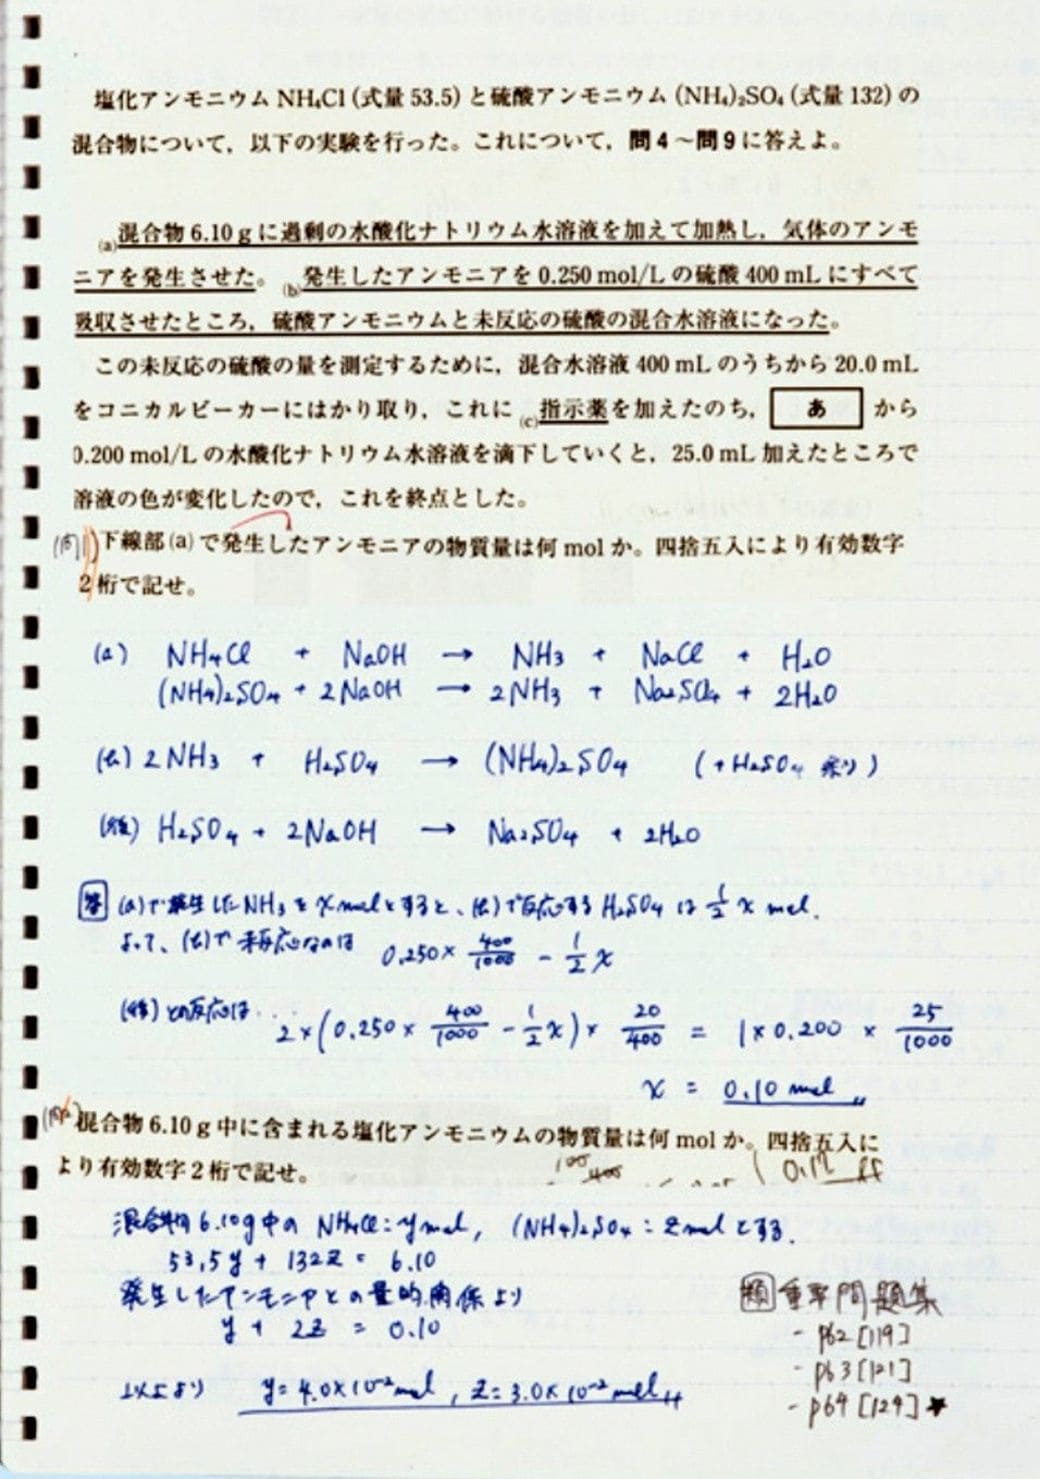 塩化アンモニウム NH₄Cl (式量 53.5) と硫酸アンモニウム (NH₄)₂SO₄ (式量 132) の
混合物について，以下の実験を行った。これについて，問4～問9に答えよ。
(a)混合物 6.10 g に過剰の水酸化ナトリウム水溶液を加えて加熱し，気体のアンモ
ニアを発生させた。(b)発生したアンモニアを 0.250 mol/L の硫酸 400 mL にすべて
吸収させたところ，硫酸アンモニウムと未反応の硫酸の混合水溶液になった。
この未反応の硫酸の量を測定するために，混合水溶液 400 mL のうちから 20.0 mL
をコニカルビーカーにはかり取り，これに(c)指示薬を加えたのち，あから
0.200 mol/L の水酸化ナトリウム水溶液を滴下していくと，25.0 mL 加えたところで
溶液の色が変化したので，これを終点とした。
(問1) 下線部(a)で発生したアンモニアの物質量は何 mol か。四捨五入により有効数字
2桁で記せ。
(a) NH₄Cl + NaOH → NH₃ + NaCl + H₂O
(NH₄)₂SO₄ + 2NaOH → 2NH₃ + Na₂SO₄ + 2H₂O
(b) 2NH₃ + H₂SO₄ → (NH₄)₂SO₄ (+H₂SO₄ 余り)
(後) H₂SO₄ + 2NaOH → Na₂SO₄ + 2H₂O
答 (a)で発生したNH₃をx molとすると、(b)で反応するH₂SO₄は 1/2 x mol.
よって、(b)で未反応なのは 0.250 × 400/1000 - 1/2 x
(後)との反応は... 2×(0.250 × 400/1000 - 1/2 x) × 20/400 = 1 × 0.200 × 25/1000
x = 0.10 mol
(問2) 混合物 6.10 g 中に含まれる塩化アンモニウムの物質量は何 mol か。四捨五入に
より有効数字2桁で記せ。
混合物 6.10g中の NH₄Cl : y mol, (NH₄)₂SO₄ : z molとする.
53.5y + 132z = 6.10
発生したアンモニアとの量的関係より
y + 2z = 0.10
以上より y = 4.0×10⁻² mol, z = 3.0×10⁻² mol
類 重要問題集
- p62 [119]
- p63 [121]
- p64 [124] ★